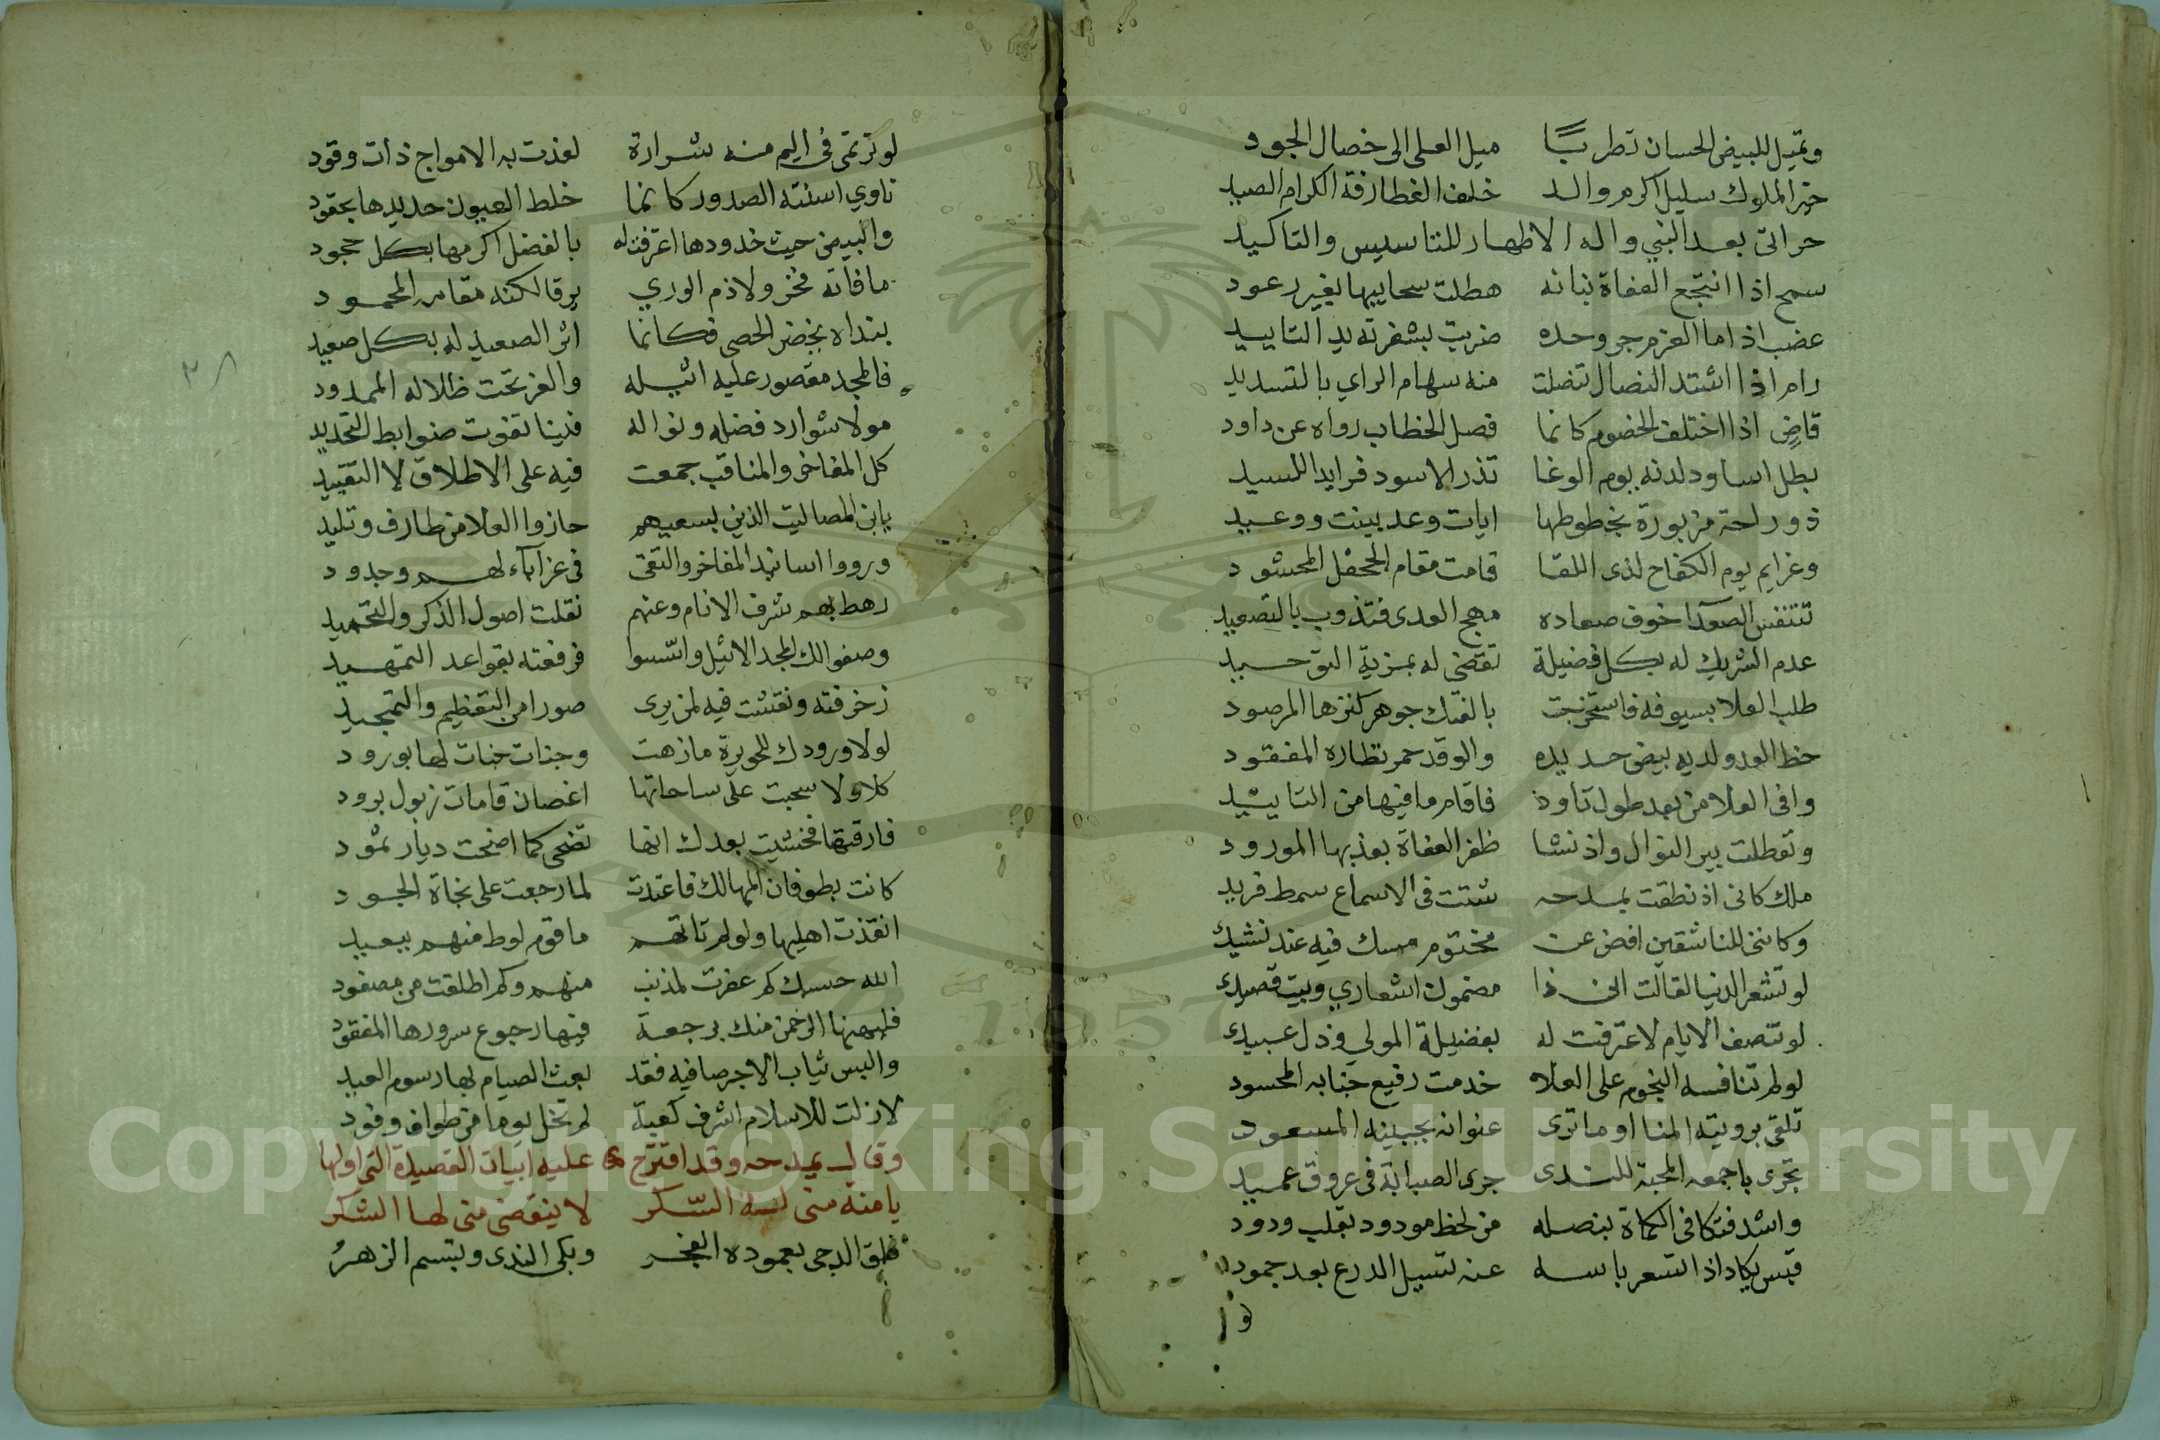 وتميل للبيض الحسان تطربًا ميل العلى الى خصال الجود
خير الملوك سليل اكرم والد خلف الغطارفة الكرام الصيد
حر اتى بعد النبي واله الاطهار للتاسيس والتاكيد
سمح اذا انتجع العفاة بنانه هطلت سحايبها بغير رعود
عضب اذا ما العزم جرد حده ضربت بشفرته يد التاييد
رام اذا اشتد النضال تنضلت منه سهام الراي بالتسديد
قاضٍ اذا اختلف الخصوم كانما فصل الخطاب رواه عن داود
بطل اساود لدنه يوم الوغا تذر الاسود فرايد للسيد
ذو راحة مزبورة بخطوطها ايات وعد بينت ووعيد
وعزايم يوم الكفاح لذى اللقا قامت مقام الجحفل المحشود
تتنفس الصعدا خوف صعاده مهج العدى فتذوب بالتصعيد
عدم الشريك له بكل فضيلة تقضى له بمزية التوحيد
طلب العلا بسيوفه فاستخرجت بالفتك جوهر كنزها المرصود
حظ العدو لديه بيض حديده والوفد حمر نظاره المفقود
وافى العلا من بعد طول تاود فاقام ما فيها من التاييد
وتعطلت بير النوال واذ نشا ظفر العفاة بعذبها المورود
ملك كانى اذ نطقت بمدحه شتت فى الاسماع سمط فريد
وكاننى للناشقين افض عن مختوم مسك فيه عند نشيدى
لو تشعر الدنيا لقالت ان ذا مضمون اشعاري وبيت قصيدى
لو تنصف الايام لاعترفت له بفضيلة المولى وذل عبيدى
لو لم تنافسه النجوم على العلا خدمت رفيع جنابه المحسود
تلقى برويته المنا او ما ترى عنوانه بجبينه المسعود
تجرى باجمعه المحبة للندى جرى الصبابة فى عروق عميد
واشد فتكا فى الكماة بنصله من لحظ مودود بقلب ودود
قبس يكاد اذا تسعر باسه عنه تسيل الدرع بعد جمود
لو
لو ترتمى فى اليم منه شرارة لغدت به الامواج ذات وقود
ناوي اسنته الصدور كانما خلط العيون حديدها بحقود
والبيض حيث خدودها اعترفت له بالفضل اكرمها بكل جحود
ما فاته فخر ولا ذم الوري يرقا لكنه مقامه المحمود
بنداه يخضر الحصى فكانما اثر الصعيد له بكل صعيد
فالمجد مقصور عليه اثيله والعز تحت ظلاله الممدود
مولا شوارد فضله ونواله فينا تفوت ضوابط التحديد
كل المفاخر والمناقب جمعت فيه على الاطلاق لا التقييد
يابن المصاليت الذين بسعيهم حازوا العلا من طارف وتليد
ورووا اسانيد المفاخر والتقى فى عز آباء لهم وجدود
رهط بهم شرف الانام وعنهم نقلت اصول الذكر والتحميد
وصفوا لك المجد الاثيل واسسوا فرفعته بقواعد التمهيد
زخرفته ونقشت فيه لمن يرى صورا من التعظيم والتمجيد
لولا ورودك للحويزة ما زهت وجنات جنات لها بورود
كلا ولا سحبت على ساحاتها اغصان قامات ذيول برود
فارقتها فخشيت بعدك انها تضحى كما اضحت ديار ثمود
كانت بطوفان المهالك فاغتدت لما رجعت على نجاة الجود
انقذت اهليها ولو لم تاتهم ما قوم لوط منهم ببعيد
الله حسبك كم غفرت لمذنب منهم وكم اطلقت من مصفود
فليهنها الرحمن منك برجعة فيها رجوع سرورها المفقود
والبس ثياب الاجر صافيه فقد بعث الصيام بها رسوم العيد
لازلت للاسلام اشرف كعبة لم تخل يوما من طواف وفود
وقال يمدحه وقد اقترح عليه ابيات القصيدة التي اولها
يا منة منى لسه السّكر لا ينقضى منى لها الشكر
فلق الدجى بعموده الفجر وبكى الندى وتبسم الزهرُ
٣٨
Copyright © King Saud University
1957